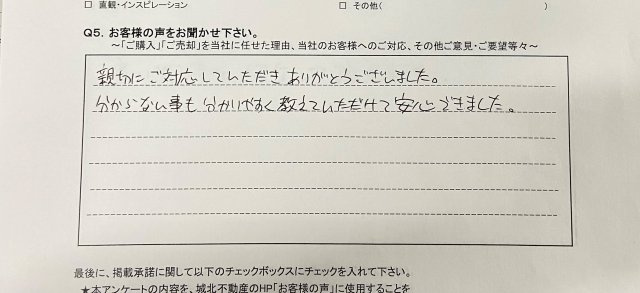 □ 直観・インスピレーション □ その他( )
Q5. お客様の声をお聞かせ下さい。
～「ご購入」「ご売却」を当社に任せた理由、当社のお客様へのご対応、その他ご意見・ご要望等々～
親切にご対応していただきありがとうございました。
分からない事も分かりやすく教えていただけて安心できました。
最後に、掲載承諾に関して以下のチェックボックスにチェックを入れて下さい。
★本アンケートの内容を、城北不動産のHP「お客様の声」に使用することを